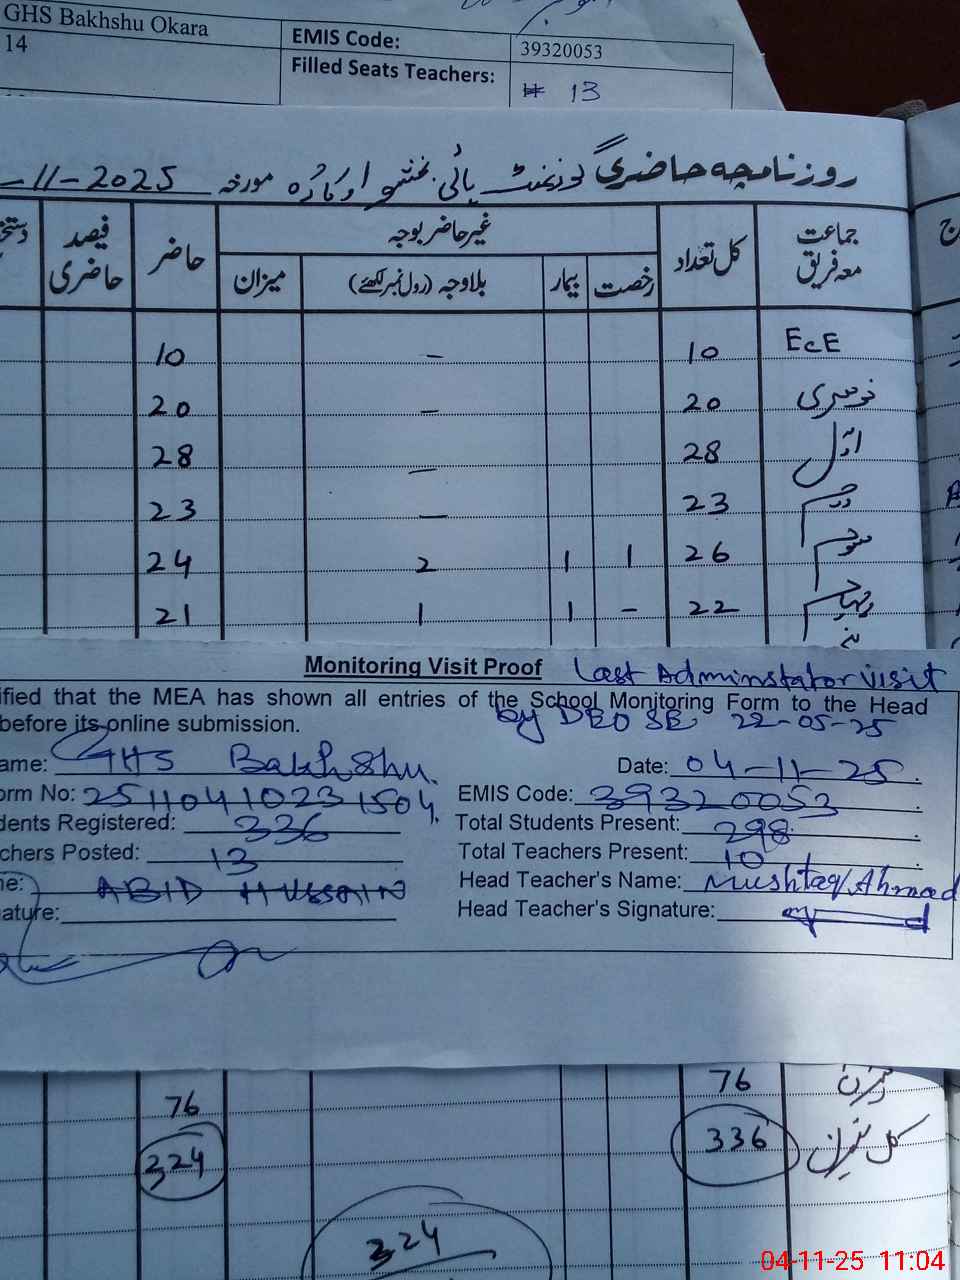 GHS Bakhshu Okara EMIS Code: 39320053
14 Filled Seats Teachers: 13
روزنامچہ حاضری گورنمنٹ ہائی بخشو اوکاڑہ مورخہ -11-2025
جماعت معہ فریق کل تعداد غیر حاضر بوجہ حاضر فیصد حاضری
رخصت بیمار بلاوجہ (رول نمبر لکھئے) میزان
ECE 10 – 10
نرسری 20 – 20
اول 28 – 28
دوم 23 – 23
سوم 26 1 1 2 24
چہارم 22 – 1 1 21
Monitoring Visit Proof Last Adminstator visit
ified that the MEA has shown all entries of the School Monitoring Form to the Head
before its online submission. by DEO SE 22-05-25
ame: GHS Bakhshu. Date: 04-11-25.
orm No: 25110410231504 EMIS Code: 39320053
dents Registered: 336 Total Students Present: 298
chers Posted: 13 Total Teachers Present: 10
ne: ABID HUSSAIN Head Teacher's Name: Mushtaq Ahmad
ature: Head Teacher's Signature:
میزان 76 76
کل میزان 336 324
324
04-11-25 11:04